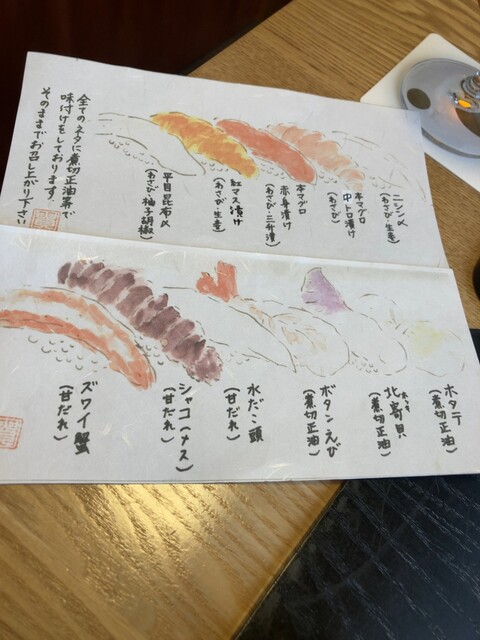 ニシン〆
(わさび・生姜)
本マグロ
中トロ漬け
(わさび)
本マグロ
赤身漬け
(わさび・三升漬)
紅マス漬け
(わさび・生姜)
平目昆布〆
(わさび・柚子胡椒)
全てのネタに煮切正油等で
味付けをしております。
そのままでお召し上がり下さい
ホタテ
(煮切正油)
北寄貝
(煮切正油)
ボタンえび
(煮切正油)
水だこ頭
(甘だれ)
シャコ(メス)
(甘だれ)
ズワイ蟹
(甘だれ)